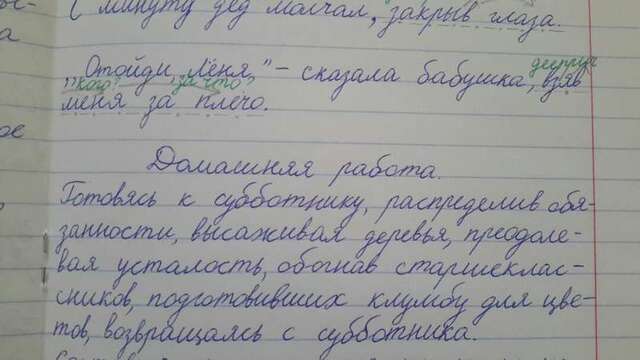 минуту дед молчал, закрыв глаза.
Отойди, Лёня," – сказала бабушка, взяв
кого? за что?
меня за плечо.
Домашняя работа.
Готовясь к субботнику, распределив обя-
занности, высаживая деревья, преодоле-
вая усталость, обогнав старшеклас-
сников, подготовивших клумбу для цве-
тов, возвращаясь с субботника.